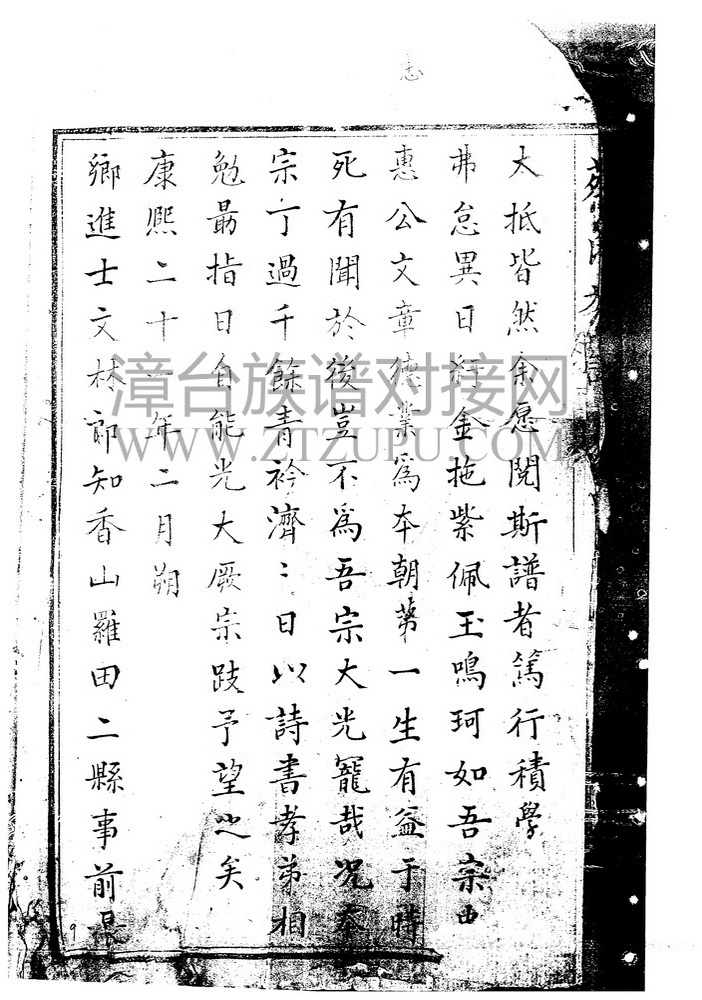 大抵皆然余愿閱斯譜者篤行積學
弗怠異日紆金拖紫佩玉鳴珂如吾宗西
惠公文章德業為本朝第一生有益于時
死有聞於後豈不為吾宗大光寵哉況本
宗丁過千餘青衿濟〻日以詩書孝弟相
勉勗指日自能光大厥宗跂予望之矣
康熙二十一年二月朔
鄉進士文林郎知香山羅田二縣事前
漳台族谱对接网
WWW.ZTZUPU.COM
9